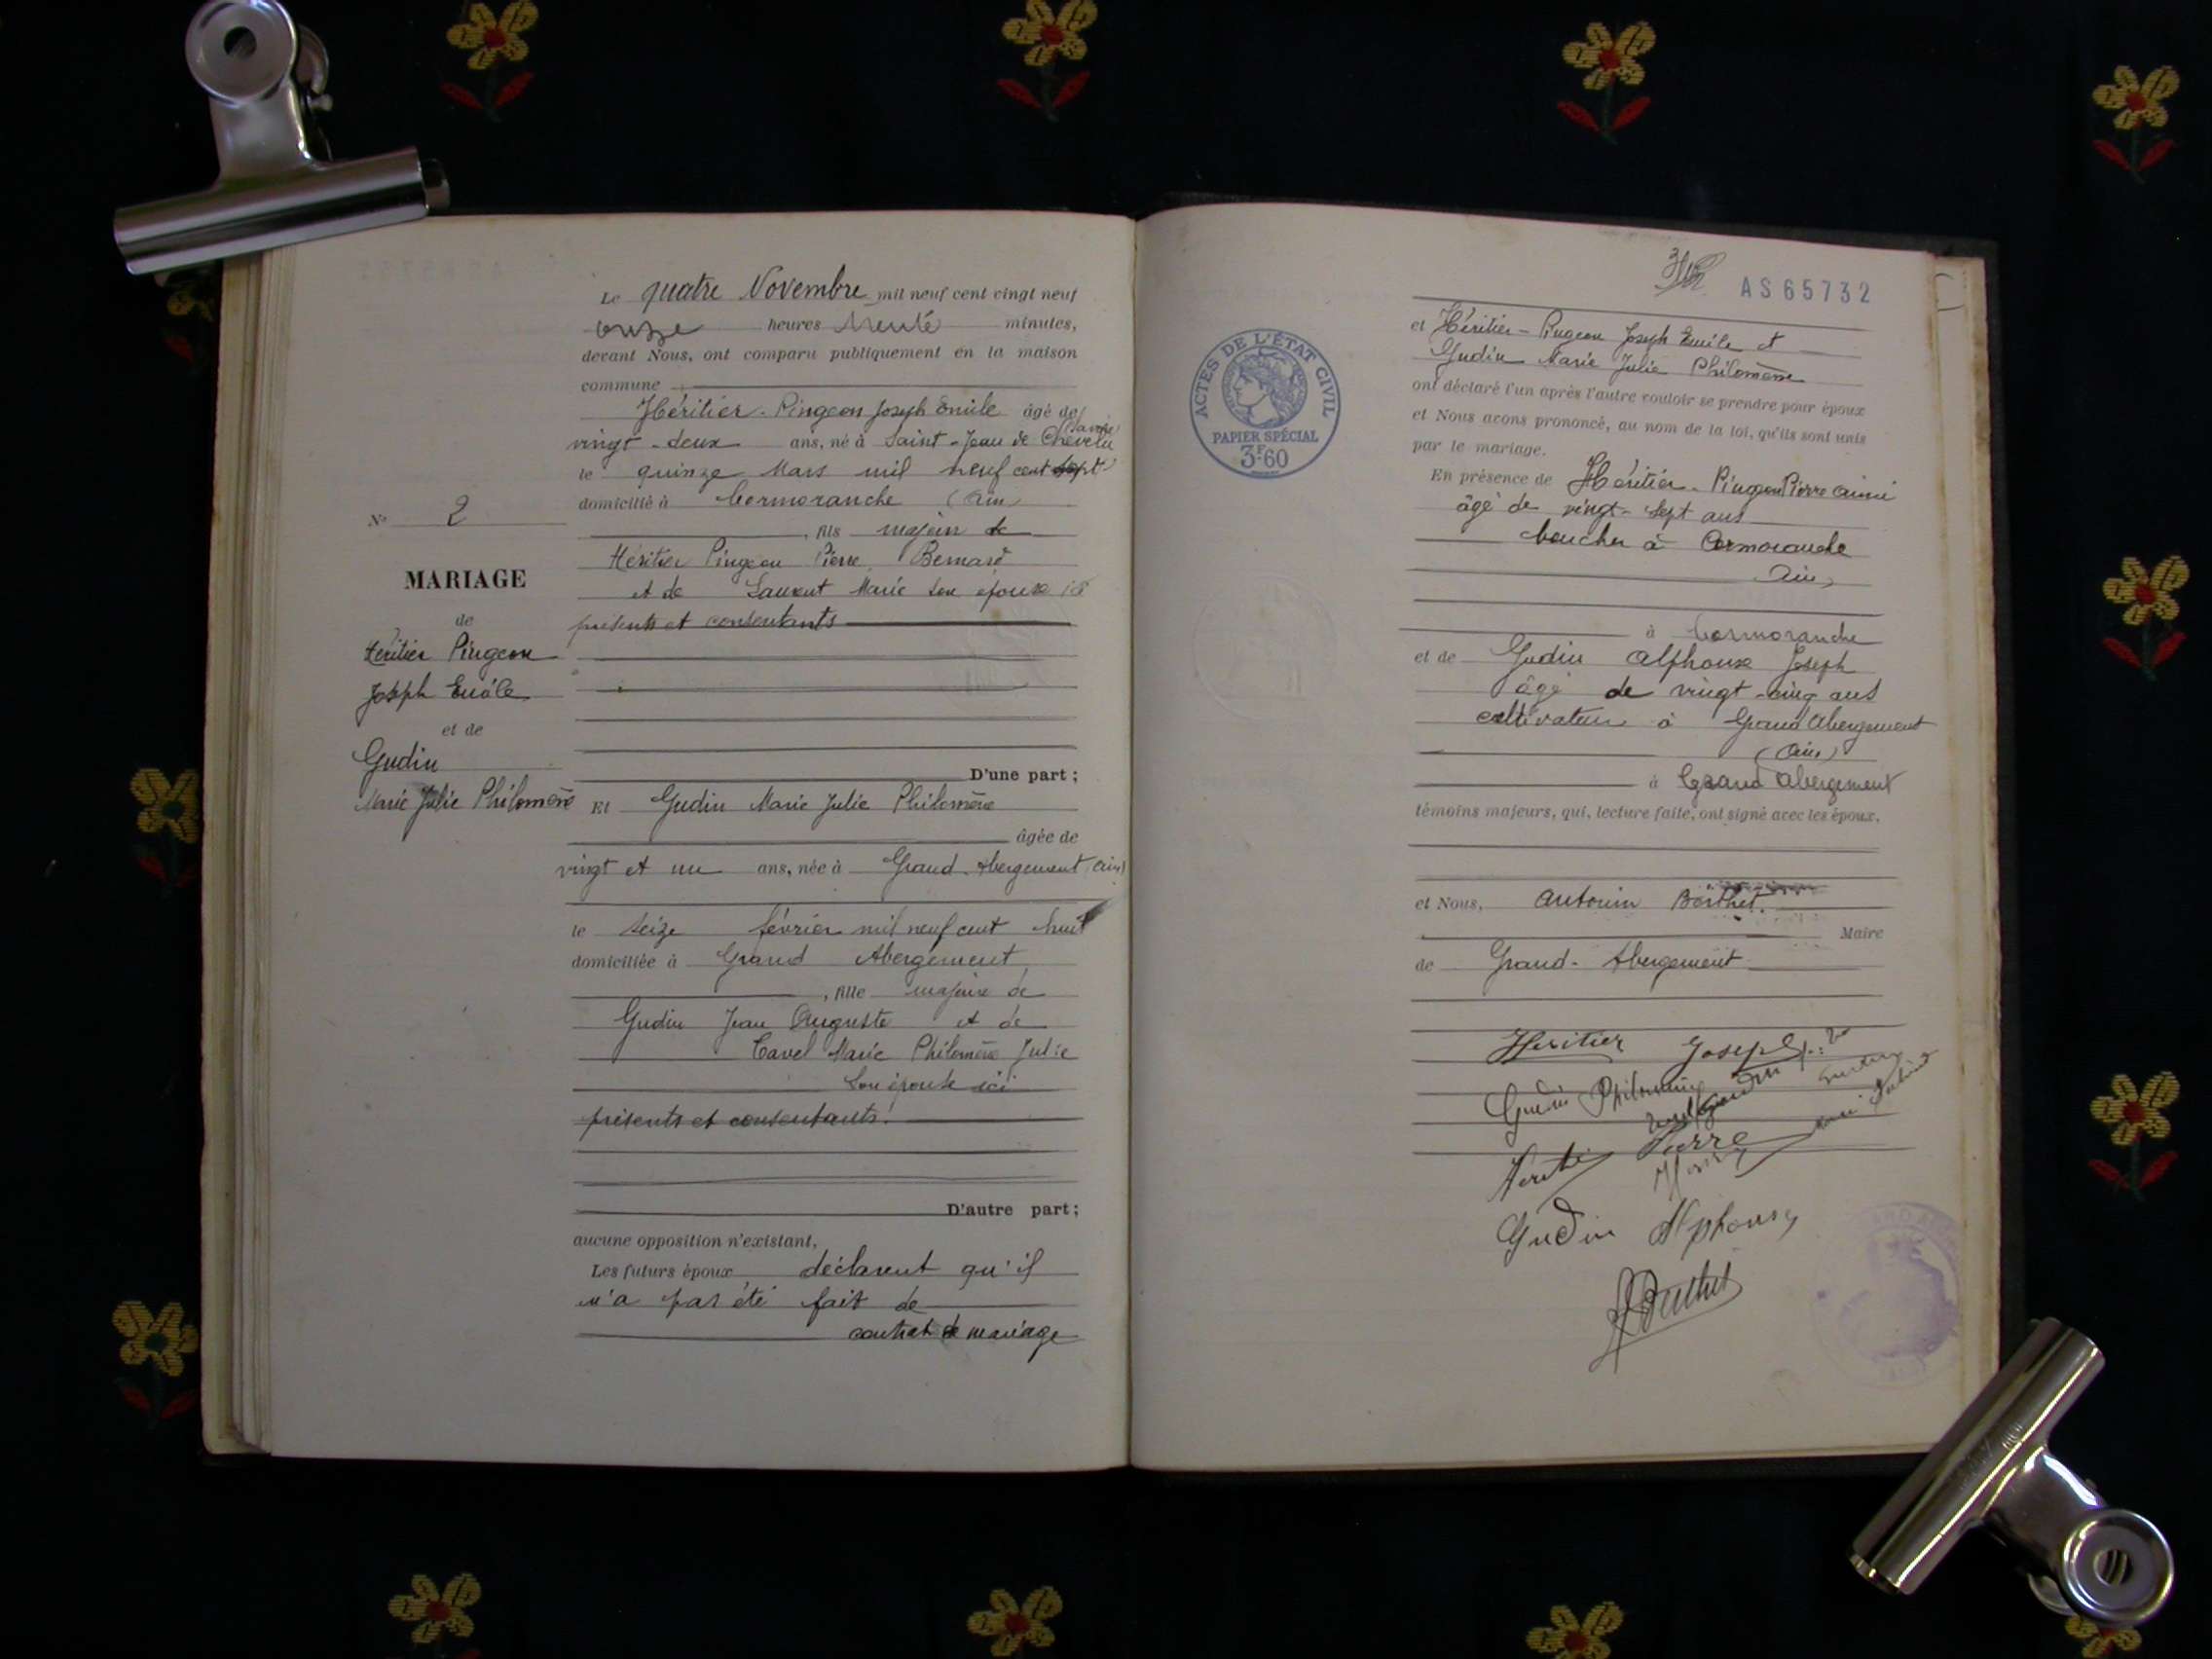 Le quatre Novembre mil neuf cent vingt neuf
onze heures trente minutes,
devant Nous, ont comparu publiquement en la maison
commune
Héritier-Pingeon Joseph Emile âgé de
vingt-deux ans, né à Saint-Jean de Chevelu (Savoie)
le quinze Mars mil neuf cent sept
domicilié à Cormoranche (Ain)
, fils majeur de
Héritier Pingeon Pierre Bernard
et de Laurent Marie son épouse ici
présents et consentants
D'une part ;
Et Gudin Marie Julie Philomène
âgée de
vingt et un ans, née à Grand-Abergement (Ain)
le seize février mil neuf cent huit
domiciliée à Grand Abergement
, fille majeure de
Gudin Jean Auguste et de
Cavel Marie Philomène Julie
son épouse ici
présents et consentants.
D'autre part ;
aucune opposition n'existant,
Les futurs époux déclarent qu'il
n'a pas été fait de
contrat de mariage
N° 2
MARIAGE
de
Héritier Pingeon
Joseph Emile
et de
Gudin
Marie Julie Philomène
AS65732
ACTES DE L'ÉTAT CIVIL
PAPIER SPÉCIAL
3F60
et Héritier-Pingeon Joseph Emile et
Gudin Marie Julie Philomène
ont déclaré l'un après l'autre vouloir se prendre pour époux
et Nous avons prononcé, au nom de la loi, qu'ils sont unis
par le mariage.
En présence de Héritier-Pingeon Pierre Aimé
âgé de vingt-sept ans
boucher à Cormoranche
Ain)
à Cormoranche
et de Gudin Alphonse Joseph
âgé de vingt-cinq ans
cultivateur à Grand Abergement
(Ain)
à Grand Abergement
témoins majeurs, qui, lecture faite, ont signé avec les époux,
et Nous, Antonin Berthet
Maire
de Grand-Abergement
Heritier Joseph
Gudin Philomène
Pierre
Gudin Alphonse
Berthet